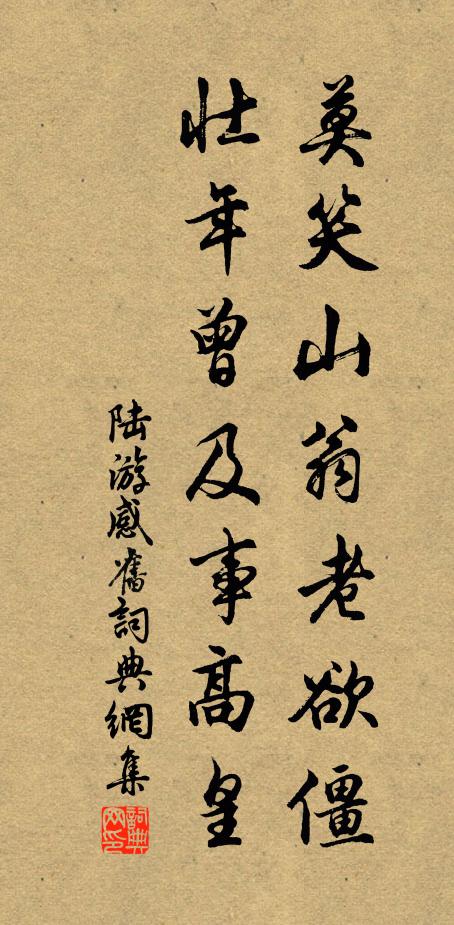 莫笑山翁老欲僵
壮年曾及事高皇
陆游感舊詞典網集
詞典网印